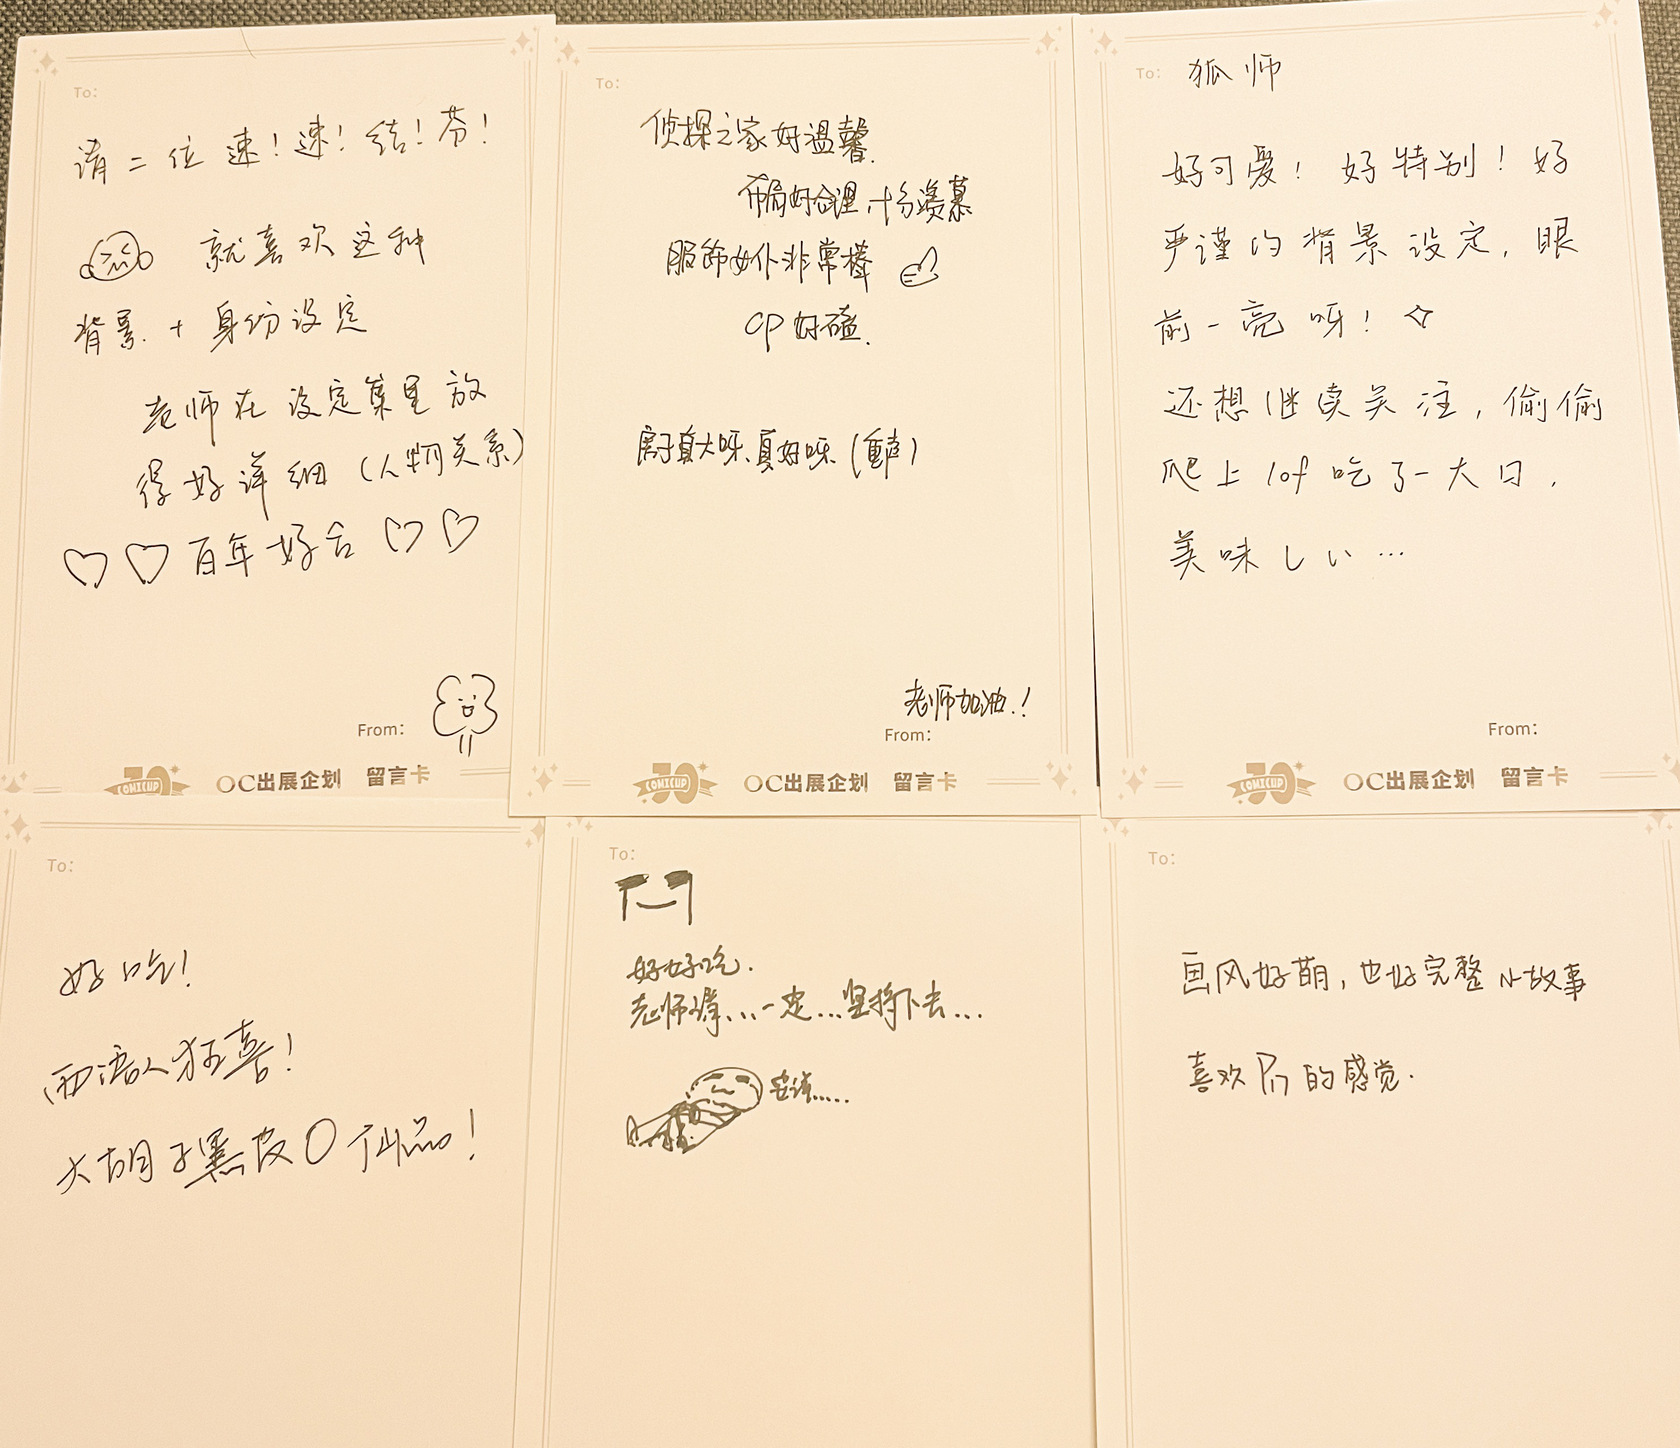 To:
请二位速！速！结！芬！
就喜欢这种
背景+身份设定
老师在设定集里放
得好详细（人物关系）
♡♡百年好合♡♡
From:
COMICUP 30 OC出展企划 留言卡
To:
侦探之家好温馨.
布局好合理,十分羡慕
服饰女仆非常棒
CP好磕.
房子真大呀、真好呀（重声）
老师加油.！
From:
COMICUP 30 OC出展企划 留言卡
To: 狐师
好可爱！好特别！好
严谨的背景设定，眼
前一亮呀！✧
还想继续关注，偷偷
爬上lof吃了一大口，
美味しい…
From:
COMICUP 30 OC出展企划 留言卡
To:
好吃！
西语人狂喜！
大胡子黑皮0仙品！
To:
好好吃.
老师请...一定...坚持下去...
To:
画风好萌，也好完整小故事
喜欢的感觉.